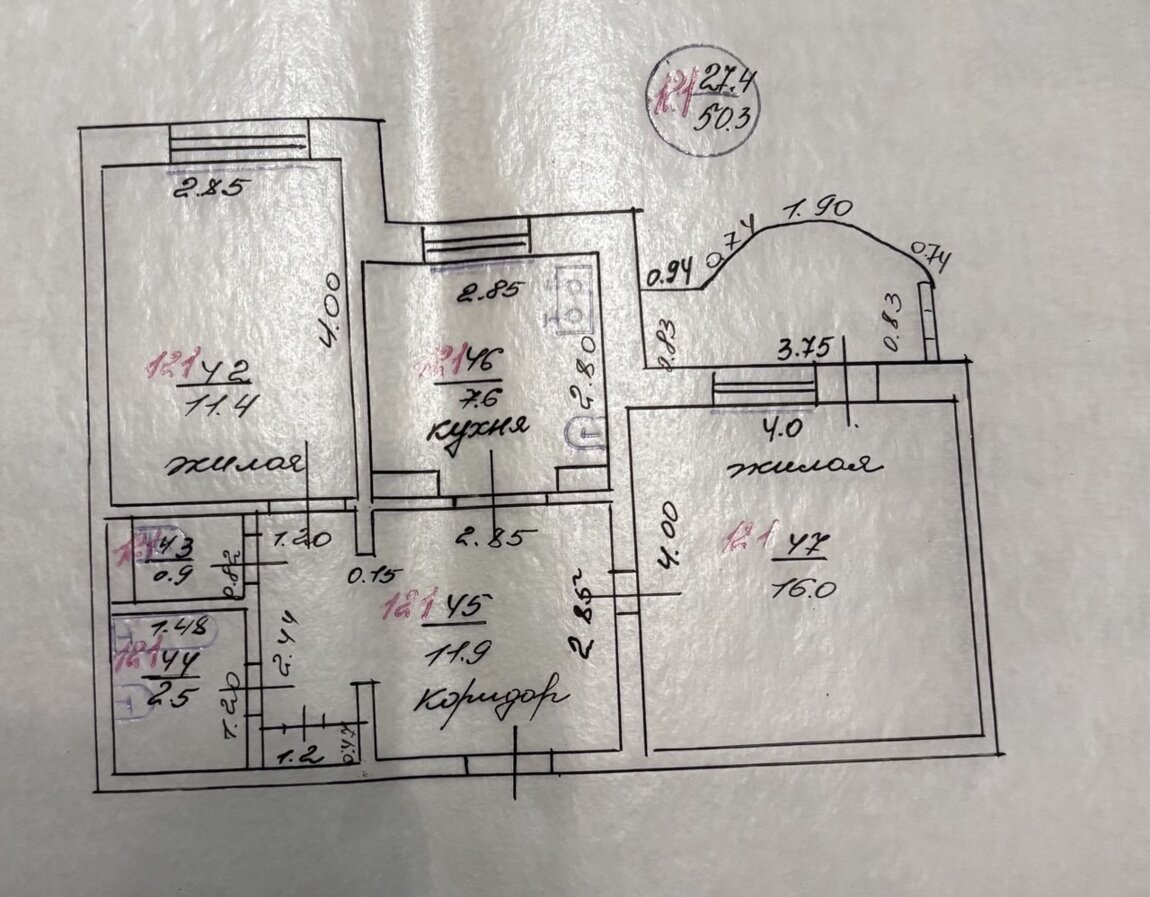 121 27.4
50.3
1.90
0.74
0.74
0.94
0.83
0.83
3.75
2.85
4.00
121 42
11.4
жилая
2.85
2.80
121 46
7.6
кухня
4.0
жилая
4.00
121 47
16.0
121 43
0.9
0.82
1.20
0.15
2.85
2.85
121 45
11.9
коридор
2.44
1.48
121 44
2.5
1.20
1.2
0.47